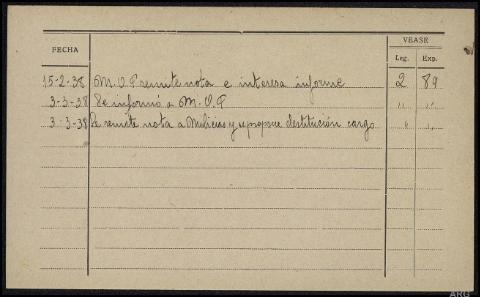 VEASE
FECHA
Leg. Exp.
15-2-38 M.O.P remite nota e interesa informe 2 89
3-3-38 Se informó a M.O.P " "
3-3-38 Se remite nota a Milicias y se propone destitución cargo " "
ARG